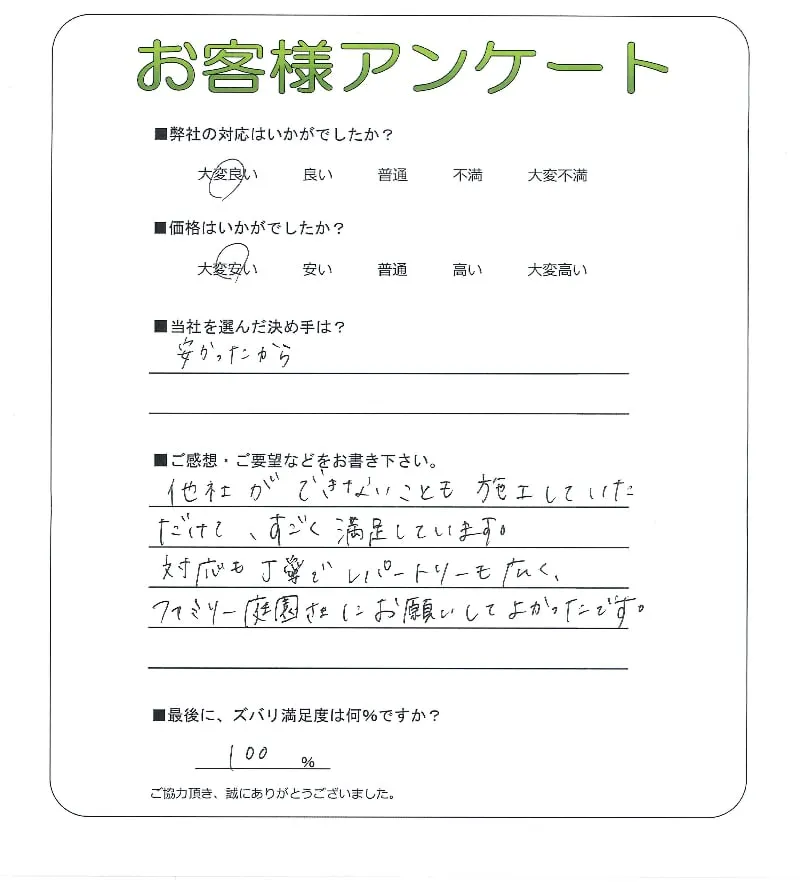 お客様アンケート
■弊社の対応はいかがでしたか？
大変良い 良い 普通 不満 大変不満
■価格はいかがでしたか？
大変安い 安い 普通 高い 大変高い
■当社を選んだ決め手は？
安かったから
■ご感想・ご要望などをお書き下さい。
他社ができないことも施工していた
だけて、すごく満足しています。
対応も丁寧でレパートリーも広く、
ファミリー庭園さまにお願いしてよかったです。
■最後に、ズバリ満足度は何％ですか？
100 %
ご協力頂き、誠にありがとうございました。